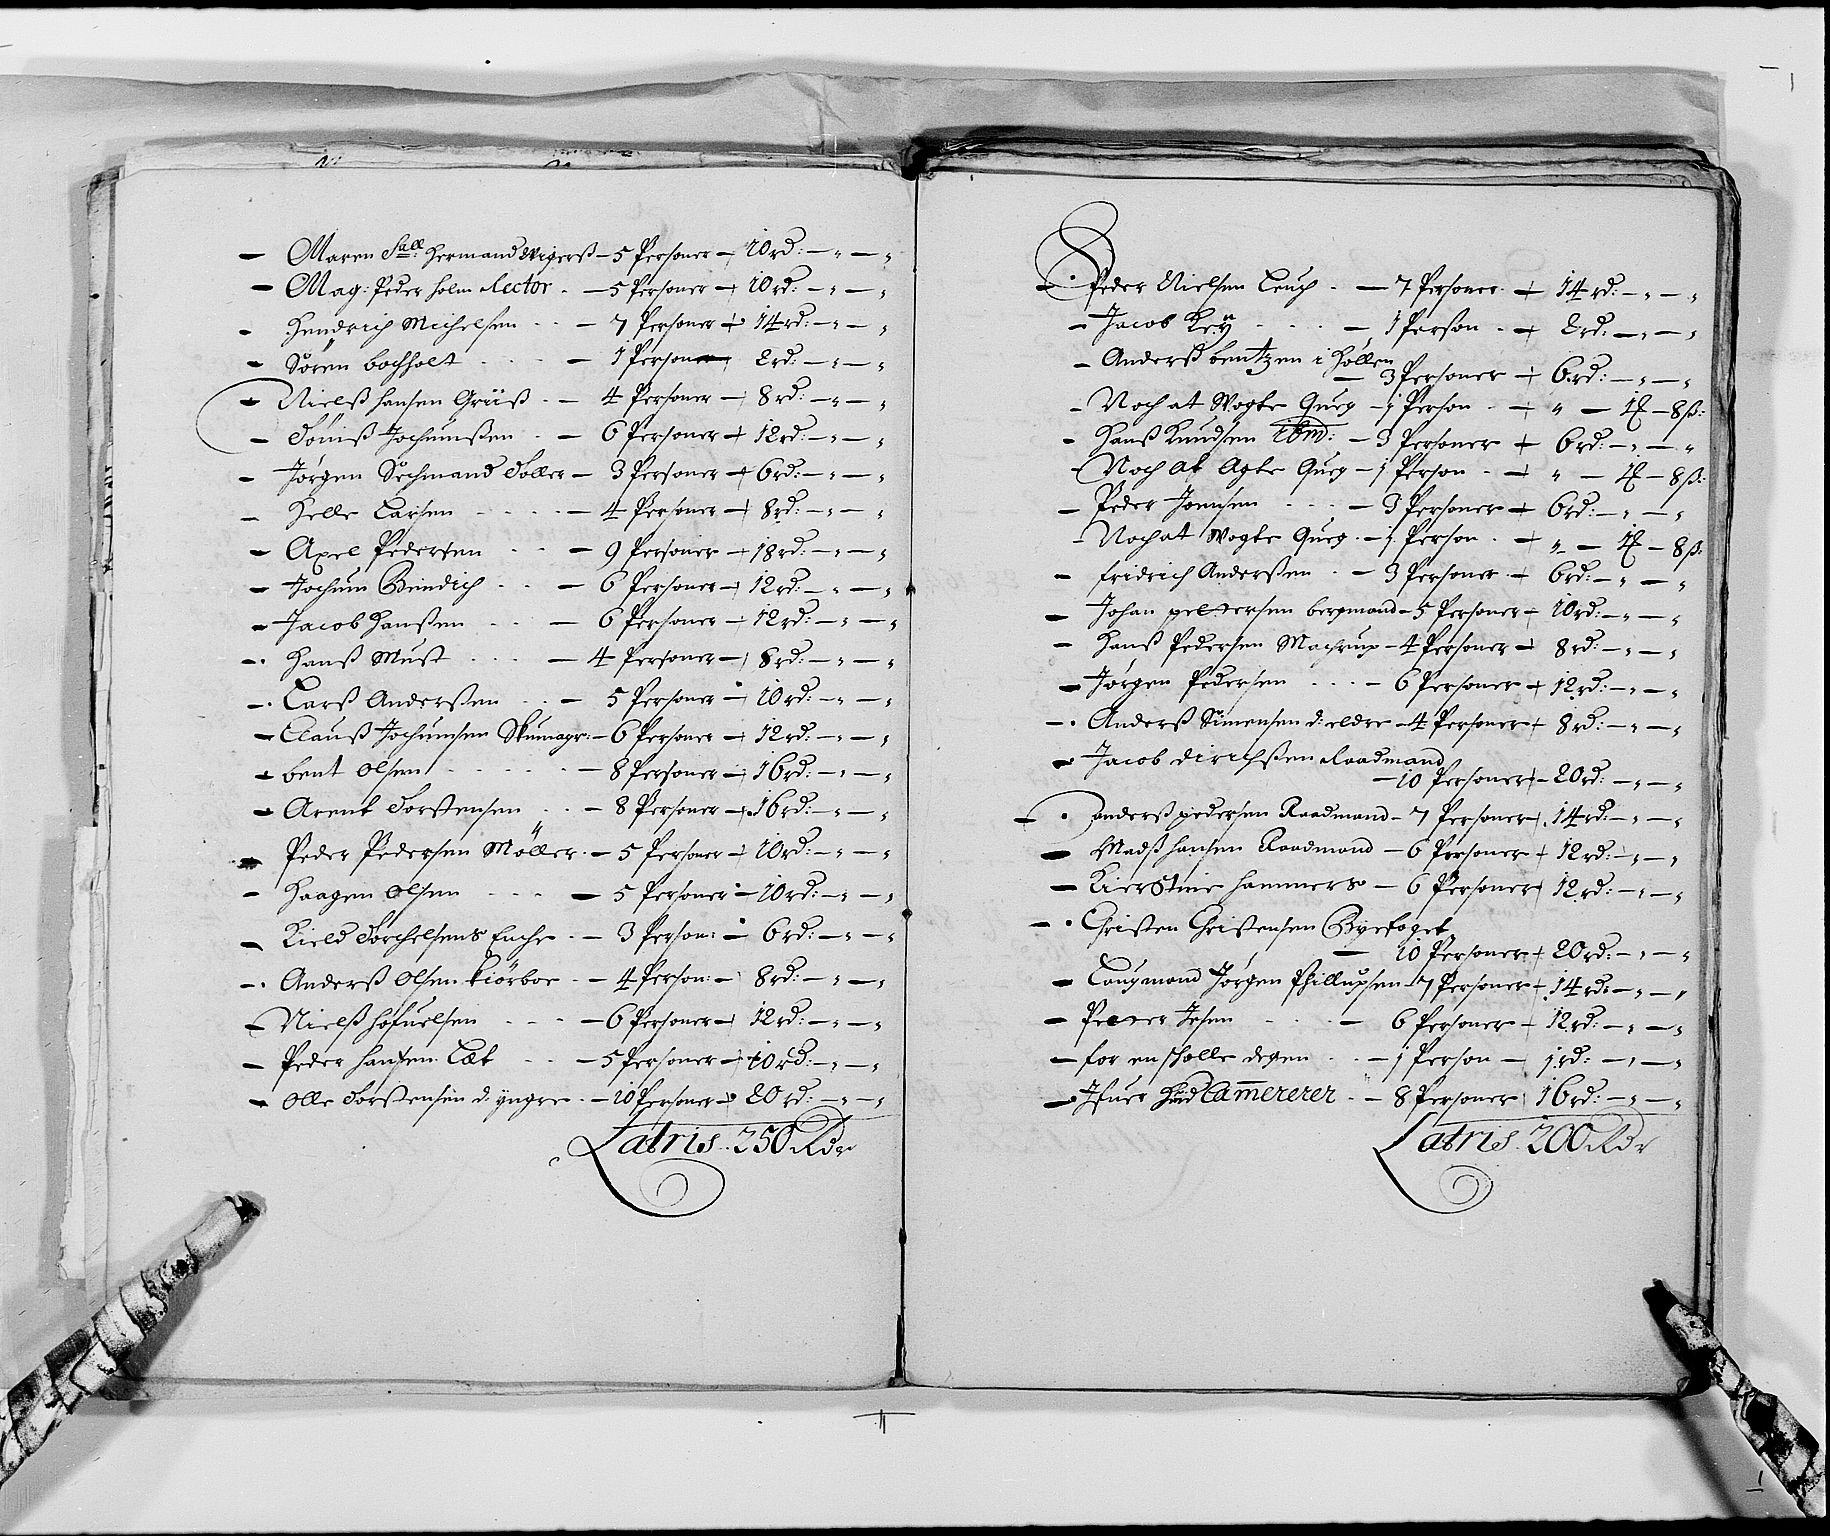 — Maren Sall: Hermand Wigerß – 5 Personer – 10 rd: – „ – „
— Mag: Peder Holm Rector . – 5 Personer – 10 rd: – „ – „
- Hendrich Michelsen . . – 7 Personer – 14 rd: – „ – „
- Sören Bochholt . . . – 1 Person – 2 rd: – „ – „
- Nielß Hansen Grüß . – 4 Personer – 8 rd: – „ – „
- Tönniß Jochumßen . – 6 Personer – 12 rd: – „ – „
- Jørgen Søchmand Toller – 3 Personer – 6 rd: – „ – „
- Helle Larsen . . . . – 4 Personer – 8 rd: – „ – „
- Axel Pedersen . . – 9 Personer – 18 rd: – „ – „
- Jochum Bendich . . – 6 Personer – 12 rd: – „ – „
- Jacob Hanßen . . . – 6 Personer – 12 rd: – „ – „
- Hanß Must . . . . – 4 Personer – 8 rd: – „ – „
- Larß Anderßen . . – 5 Personer – 10 rd: – „ – „
- Clauß Jochumsen Skumagr: – 6 Personer – 12 rd: – „ – „
- bent Olsen . . . . – 8 Personer – 16 rd: – „ – „
- Arent Torstensen . . – 8 Personer – 16 rd: – „ – „
- Peder Pedersen Möller . – 5 Personer – 10 rd: – „ – „
- Haagen Olsen . . . – 5 Personer – 10 rd: – „ – „
- Kield Torchelsens Enche . – 3 Person: – 6 rd: – „ – „
- Anderß Olsen Kiörboe . – 4 Person: – 8 rd: – „ – „
- Nielß Hofuelsen . . . – 6 Personer – 12 rd: – „ – „
- Peder Hansen Læt . . – 5 Personer – 10 rd: – „ – „
- Olle Torstensen d. yngre . – 10 Personer – 20 rd: – „ – „
Latris . 250 Rdr
- Peder Nielsen Leuch . – 7 Personer – 14 rd: – „ – „
- Jacob Keÿ . . . . – 1 Person . – 2 rd: – „ – „
- Anderß bentzen i Hollen
– 3 Personer – 6 rd: – „ – „
- Noch at Wogte Queg – 1 Person . – „ – 1 ℔ – 8 ß:
- Hanß Knudsen ibm: – 3 Personer – 6 rd: – „ – „
- Noch at Agte Queg – 1 Person . – „ – 1 ℔ – 8 ß:
- Peder Joensen . . . – 3 Personer – 6 rd: – „ – „
- Noch at Wogte Queg . – 1 Person . – „ – 1 ℔ – 8 ß:
- fridrich Anderßen . – 3 Personer – 6 rd: – „ – „
- Johan pettersen bergmand – 5 Personer – 10 rd: – „ – „
- Hanß Pedersen Machrup – 4 Personer – 8 rd: – „ – „
- Jørgen Pedersen . . . – 6 Personer – 12 rd: – „ – „
- Anderß Simensen d: eldre – 4 Personer – 8 rd: – „ – „
- Jacob dirichßen Raadmand
– 10 Personer – 20 rd: – „ – „
- anderß pedersen Raadmand – 7 Personer – 14 rd: – „ – „
- Madß Hansen Raadmand – 6 Personer – 12 rd: – „ – „
- Kierstine Hammers – 6 Personer – 12 rd: – „ – „
- Christen Christensen Byefoget
– 10 Personer – 20 rd: – „ – „
- Laugmand Jørgen Phillupsen – 7 Personer – 14 rd: – „ – „
- Petter Jesen . . . – 6 Personer – 12 rd: – „ – „
- for en skolle degen . . – 1 Person – 1 rd: – „ – „
- Ifuer Hud Cammererer . – 8 Personer – 16 rd: – „ – „
Latris . 200 Rdr